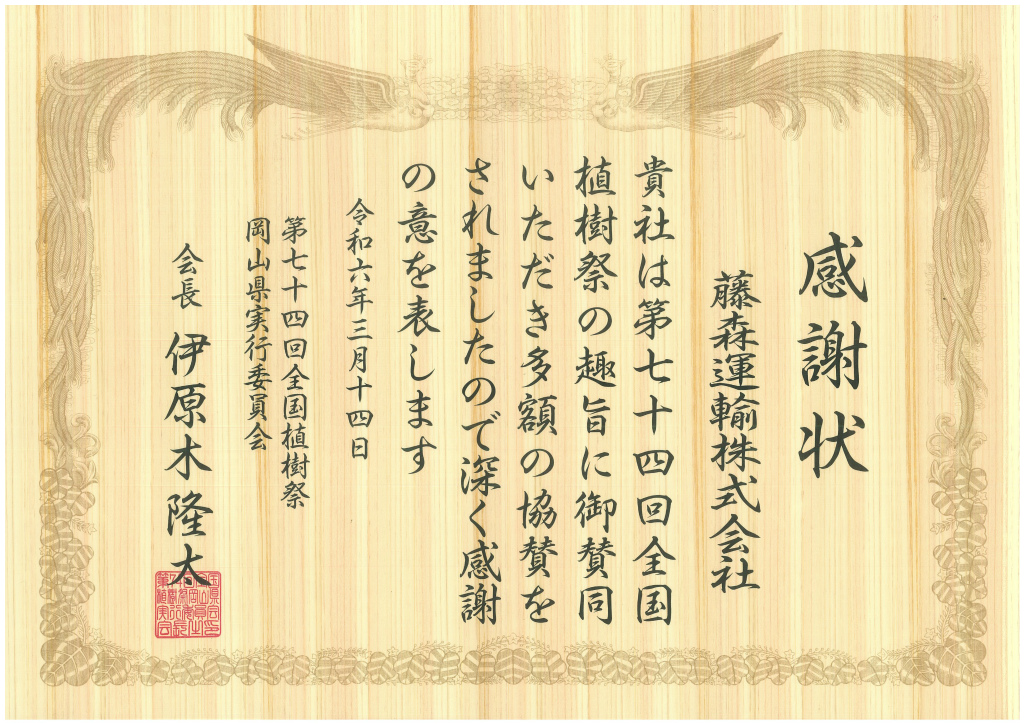 感謝状
藤森運輸株式会社
貴社は第七十四回全国
植樹祭の趣旨に御賛同
いただき多額の協賛を
されましたので深く感謝
の意を表します
令和六年三月十四日
第七十四回全国植樹祭
岡山県実行委員会
会長 伊原木隆太